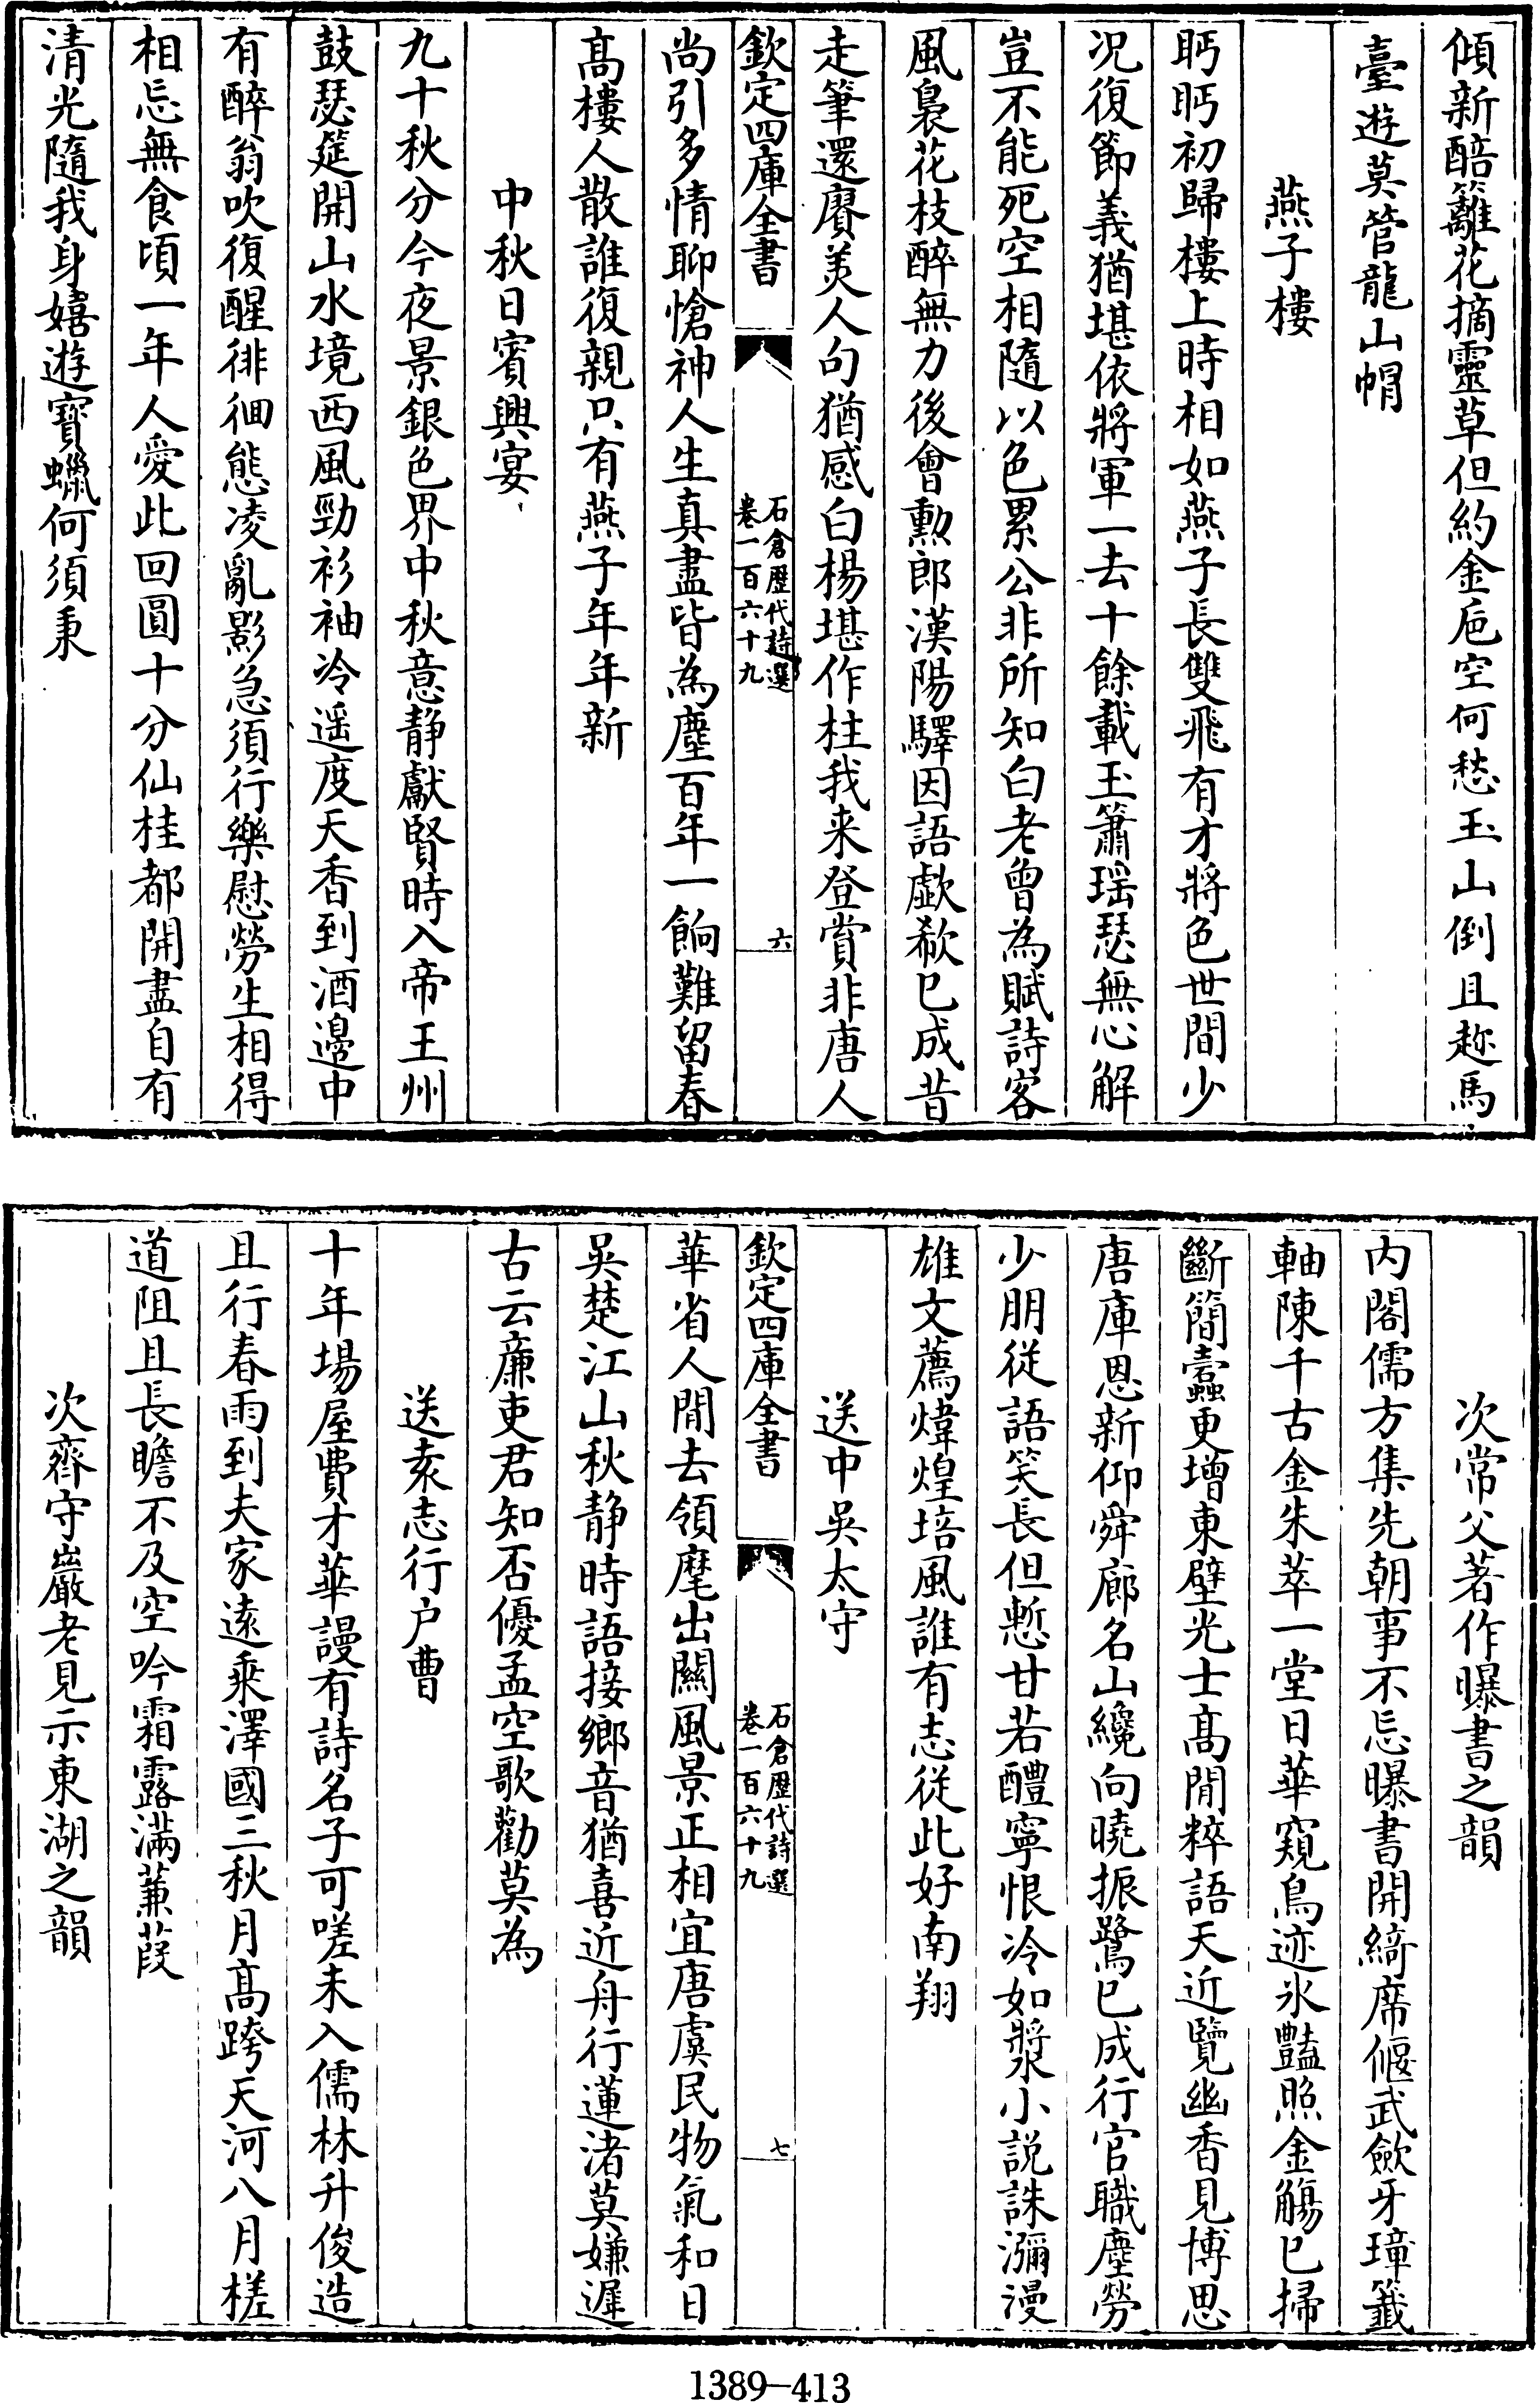 傾新醅籬花摘靈草但約金巵空何愁玉山倒且趂馬
臺遊莫管龍山帽
燕子樓
眄眄初歸樓上時相如燕子長雙飛有才將色世間少
况復節義猶堪依將軍一去十餘載玉簫瑶瑟無心解
豈不能死空相隨以色累公非所知白老曾為賦詩客
風裊花枝醉無力後會勲郎漢陽驛因語歔欷已成昔
走筆還賡美人句猶感白楊堪作柱我来登賞非唐人
欽定四庫全書
石倉歷代詩選
卷一百六十九
六
尚引多情聊愴神人生真盡皆為塵百年一餉難留春
髙樓人散誰復親只有燕子年年新
中秋日賓興宴
九十秋分今夜景銀色界中秋意静獻賢時入帝王州
鼓瑟筵開山水境西風勁衫袖冷遥度天香到酒邉中
有醉翁吹復醒徘徊態凌亂影急須行樂慰勞生相得
相忘無食頃一年人愛此回圓十分仙桂都開盡自有
清光隨我身嬉遊寳蠟何須秉
次常父著作曝書之韻
内閣儒方集先朝事不忘曝書開綺席偃武歛牙璋籤
軸陳千古金朱萃一堂日華窺鳥迹氷豔照金觴已掃
斷簡蠧更增東壁光士髙閒粹語天近覽幽香見博思
唐庫恩新仰舜廊名山纔向曉振鷺已成行官職塵勞
少朋從語笑長但慙甘若醴寧恨冷如漿小説誅瀰漫
雄文薦煒煌培風誰有志從此好南翔
送中吳太守
欽定四庫全書
石倉歷代詩選
卷一百六十九
七
華省人閒去領麾出關風景正相宜唐虞民物氣和日
吳楚江山秋静時語接鄉音猶喜近舟行蓮渚莫嫌遲
古云亷吏君知否優孟空歌勸莫為
送袁志行户曹
十年場屋費才華謾有詩名子可嗟未入儒林升俊造
且行春雨到夫家逺乘澤國三秋月髙跨天河八月槎
道阻且長瞻不及空吟霜露滿蒹葭
次齊守巖老見示東湖之韻
1389—413